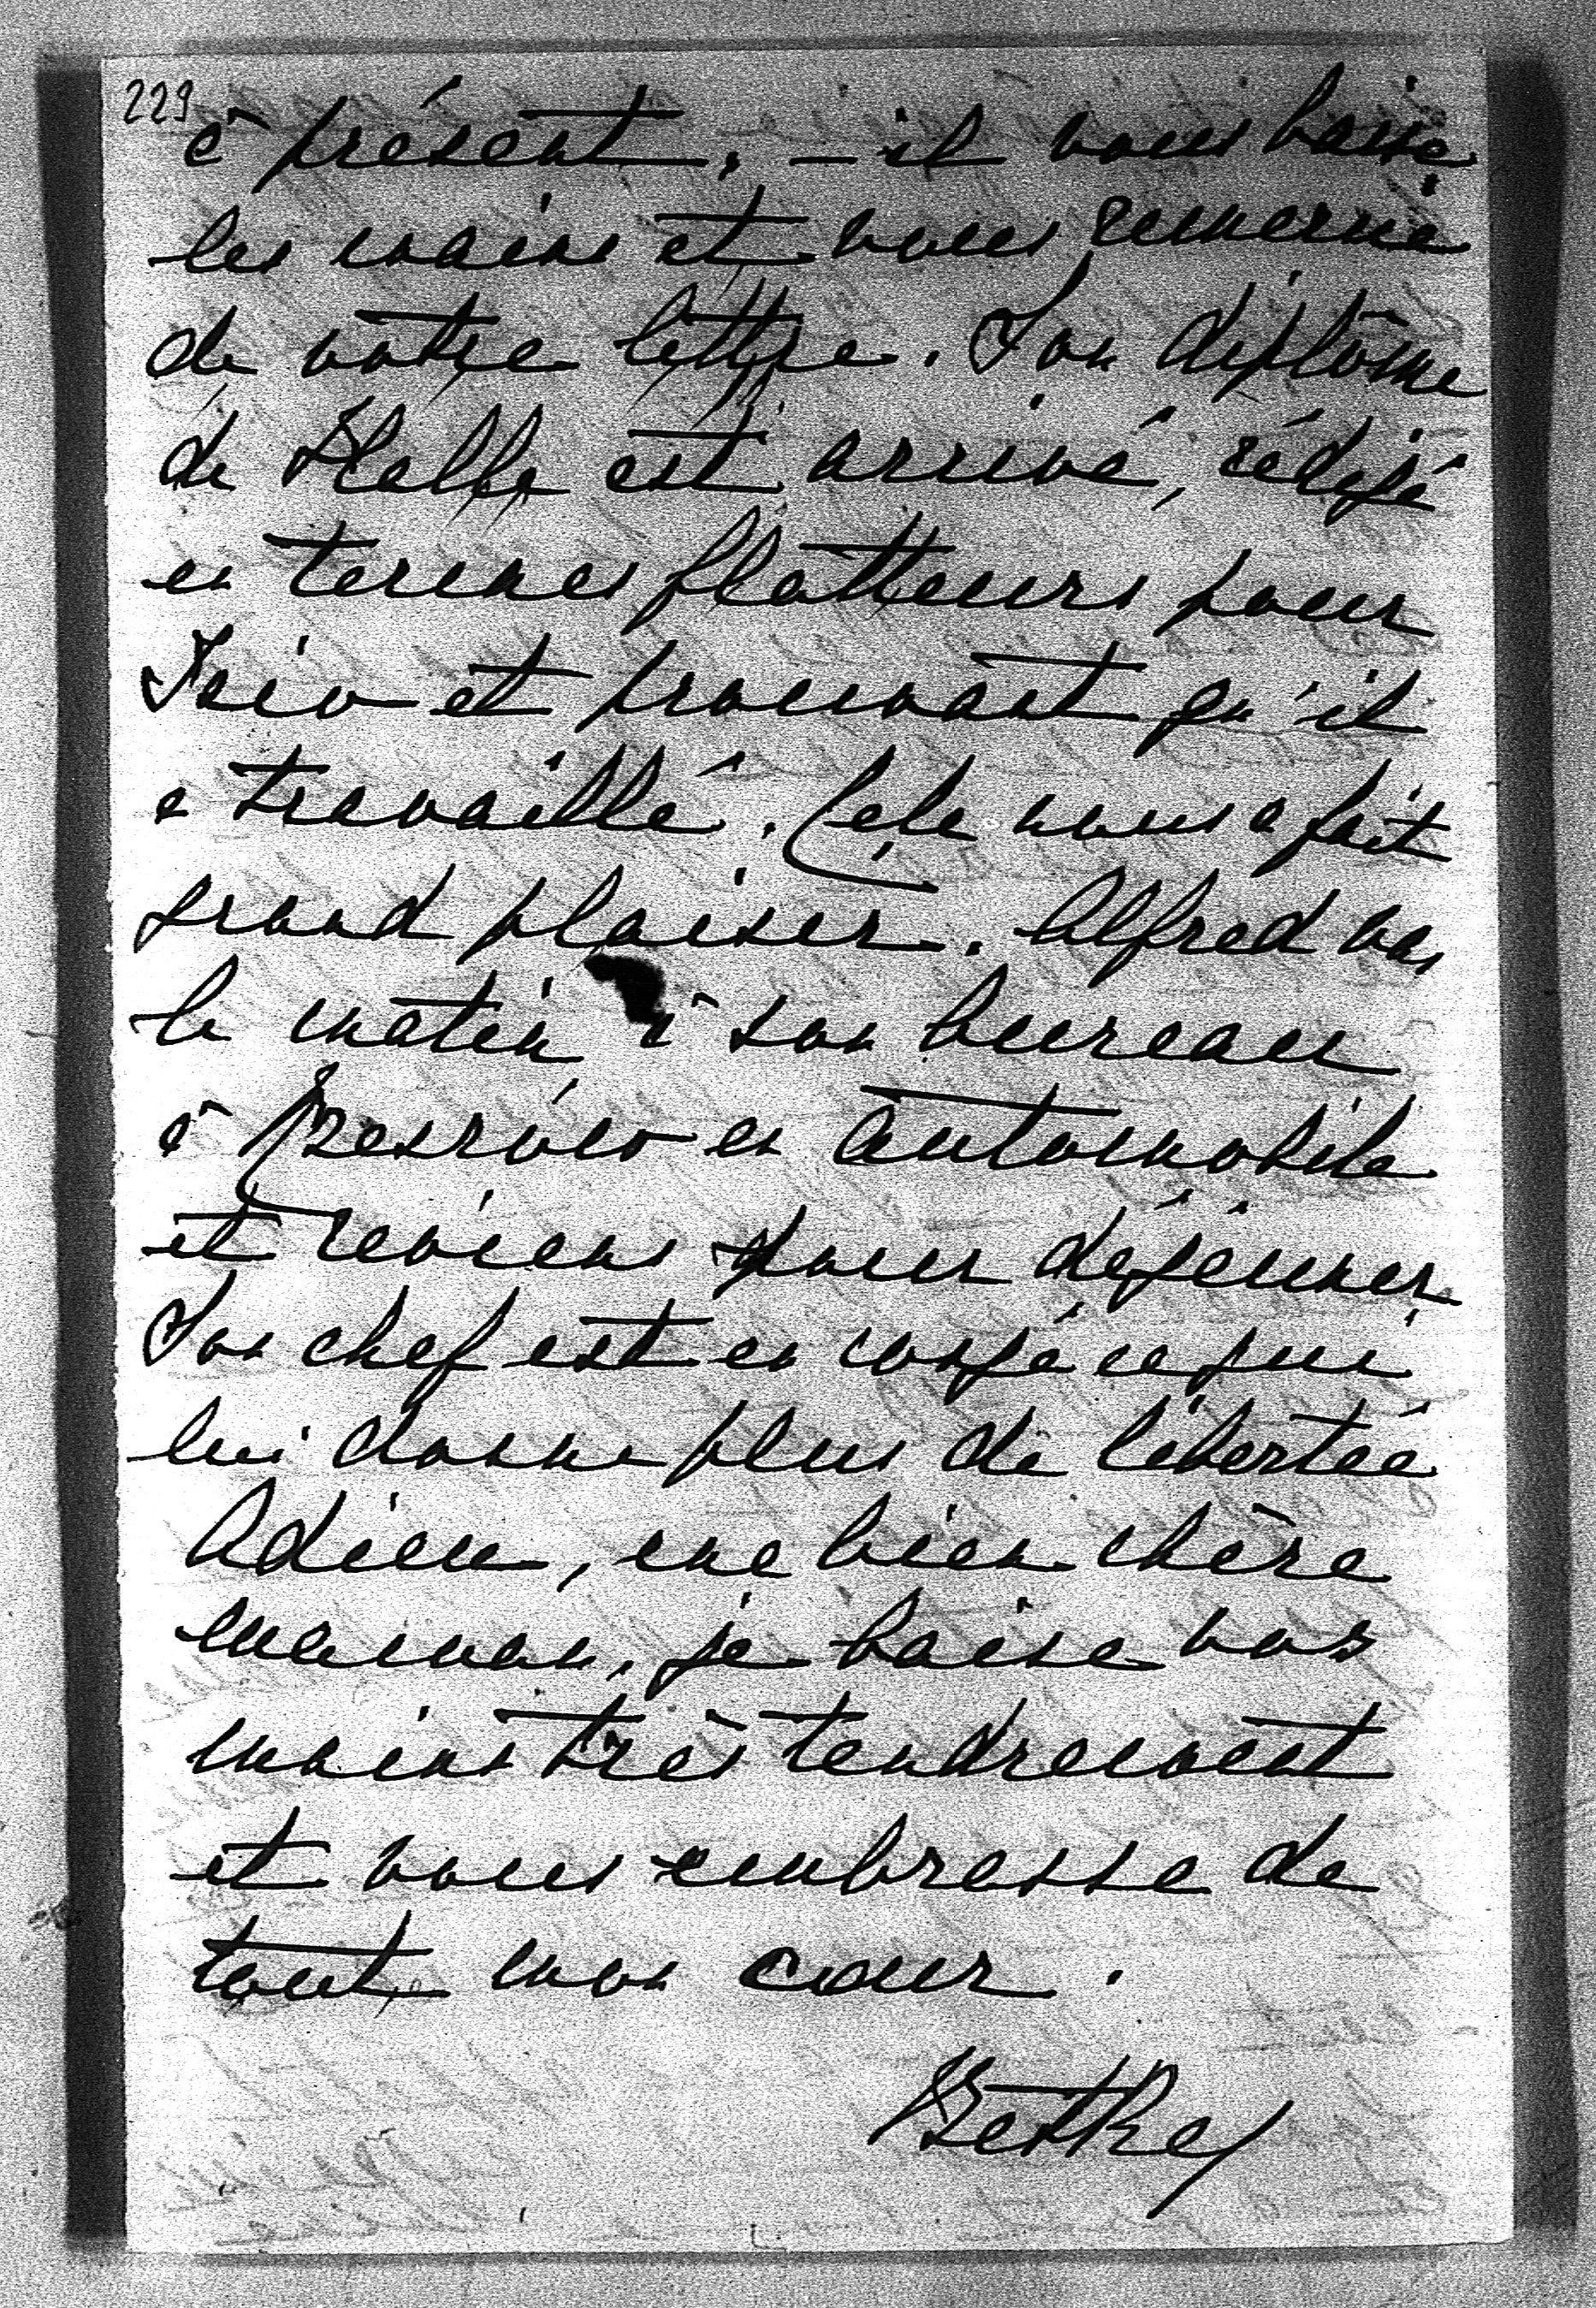 229
à présent, – il vous baise
les mains et vous remercie
de votre lettre. Son diplôme
de Halle est arrivé, rédigé
en termes flatteurs pour
et prouvant qu'il
a travaillé. Cela nous a fait
grand plaisir. Alfred va
le matin à son bureau
à en automobile
et reviens pour déjeuner
Son chef est en congé ce qui
lui donne plus de liberté
Adieu, ma bien chère
maman, je baise vos
mains très tendrement
et vous embrasse de
tout mon cœur.